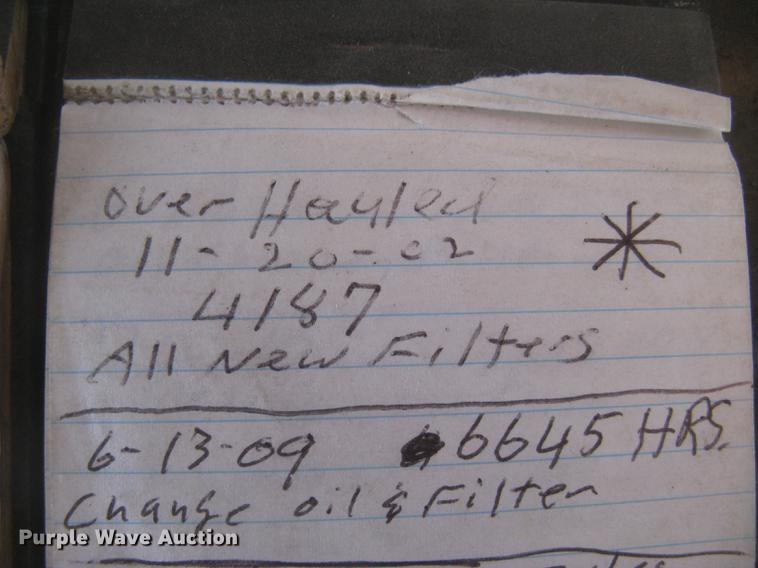 Over Hauled
11-20-02
4187
All New Filters
6-13-09 6645 HRS.
Change oil & Filter
Purple Wave Auction